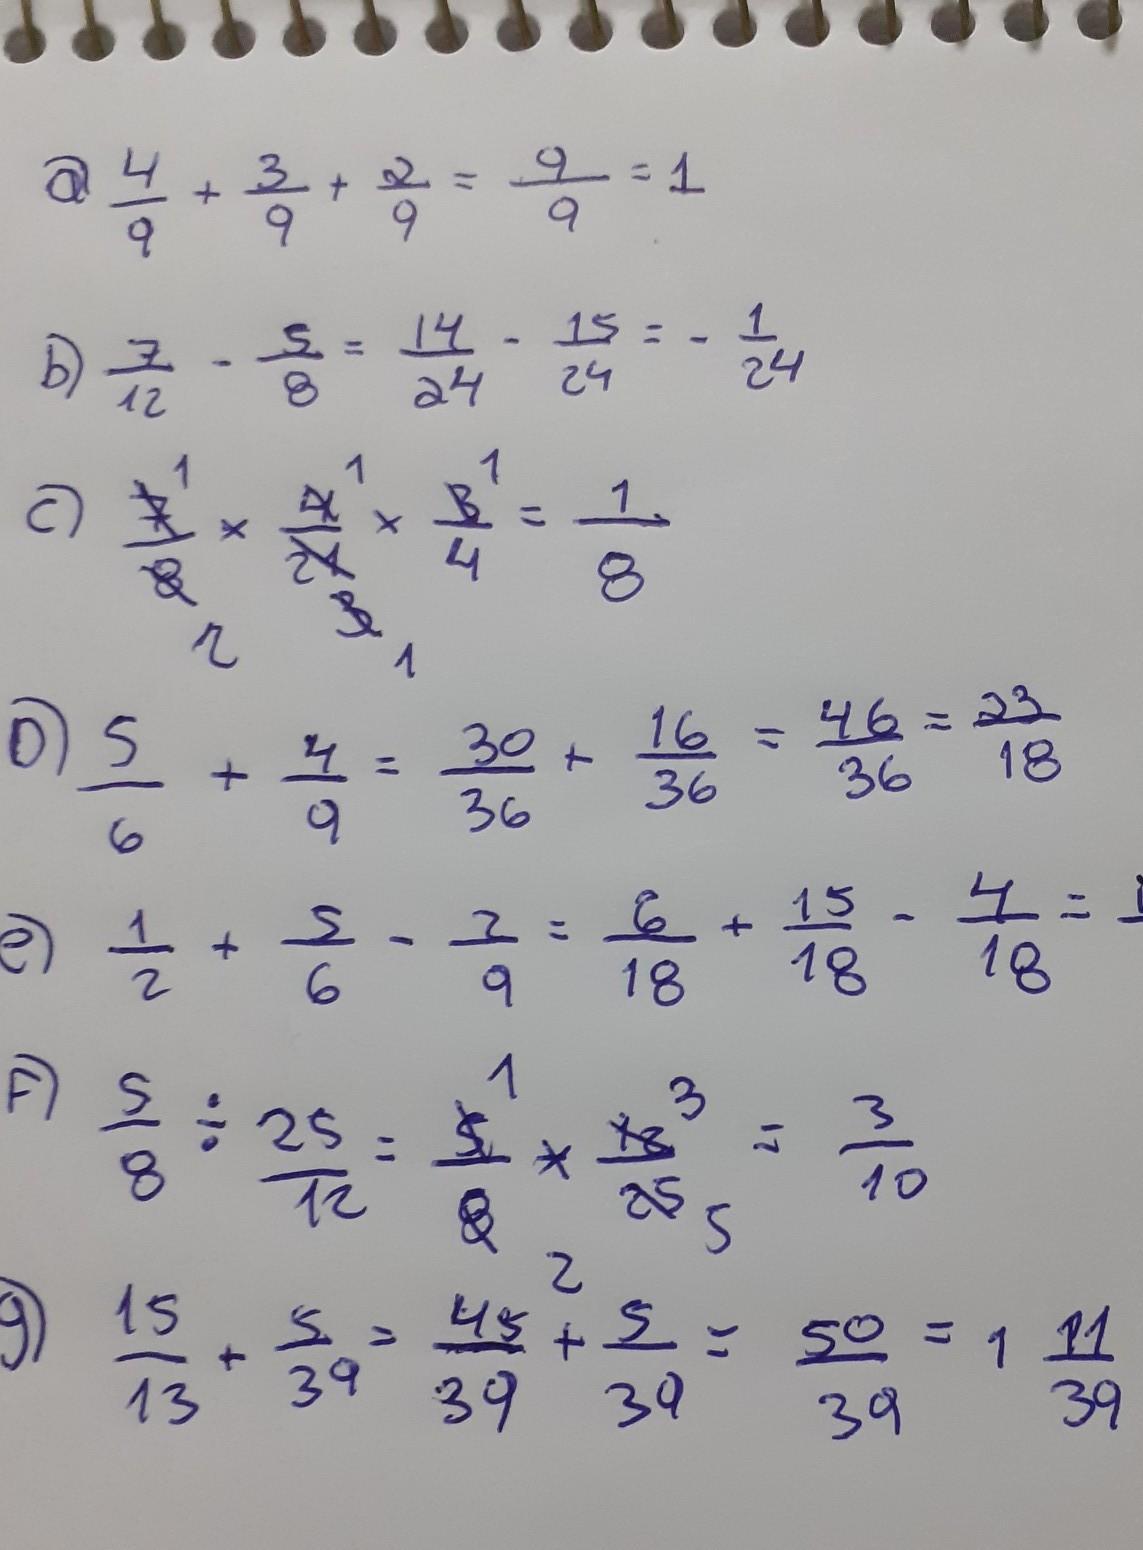 a) 4/9 + 3/9 + 2/9 = 9/9 = 1
b) 7/12 - 5/8 = 14/24 - 15/24 = - 1/24
c) 7/8 1 2 × 4/21 1 3 1 × 3/4 1 = 1/8
D) 5/6 + 4/9 = 30/36 + 16/36 = 46/36 = 23/18
e) 1/2 + 5/6 - 2/9 = 6/18 + 15/18 - 4/18 =
F) 5/8 ÷ 25/12 = 5/8 1 2 × 12/25 3 5 = 3/10
g) 15/13 + 5/39 = 45/39 + 5/39 = 50/39 = 1 11/39